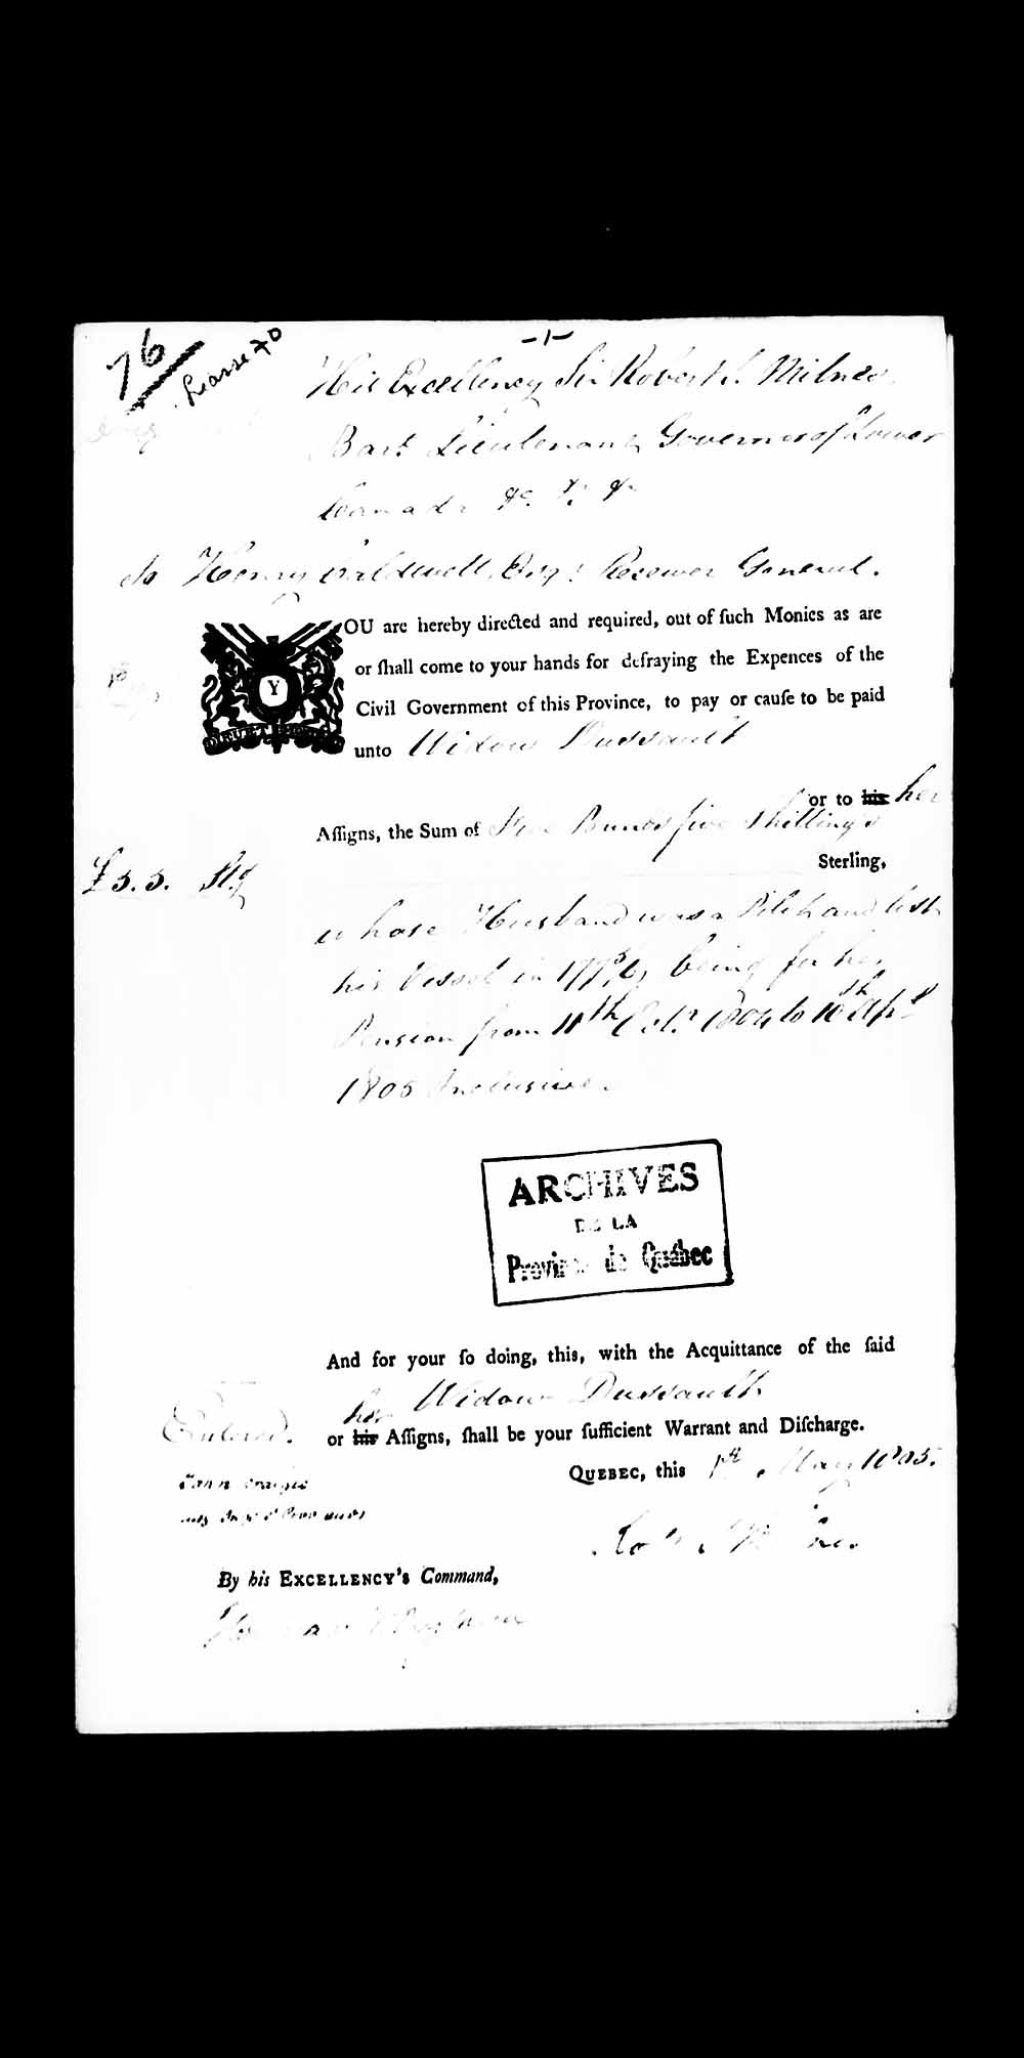 76
Liasse 70
-1-
His Excellency Sir Robert S. Milnes
Bart Lieutenant Governor of Lower
Canada &c. &c. &c
To Henry Caldwell, Esqr: Receiver General.
YOU are hereby directed and required, out of ſuch Monies as are
or ſhall come to your hands for defraying the Expences of the
Civil Government of this Province, to pay or cauſe to be paid
unto Widow Dussault
or to his her
Aſſigns, the Sum of Five Pounds five Shillings
Sterling,
£5.5. Stg
whose Husband was a Pilot and lost
his Vessel in 1775/6, being for her
Pension from 11th Octr. 1804 to 10th Apl
1805 Inclusive.
ARCHIVES
DE LA
Province de Québec
And for your ſo doing, this, with the Acquittance of the ſaid
Widow Dussault
her
or his Aſſigns, ſhall be your ſufficient Warrant and Diſcharge.
Entered.
QUEBEC, this 1st May 1805.
John Craigie
By his EXCELLENCY's Command,